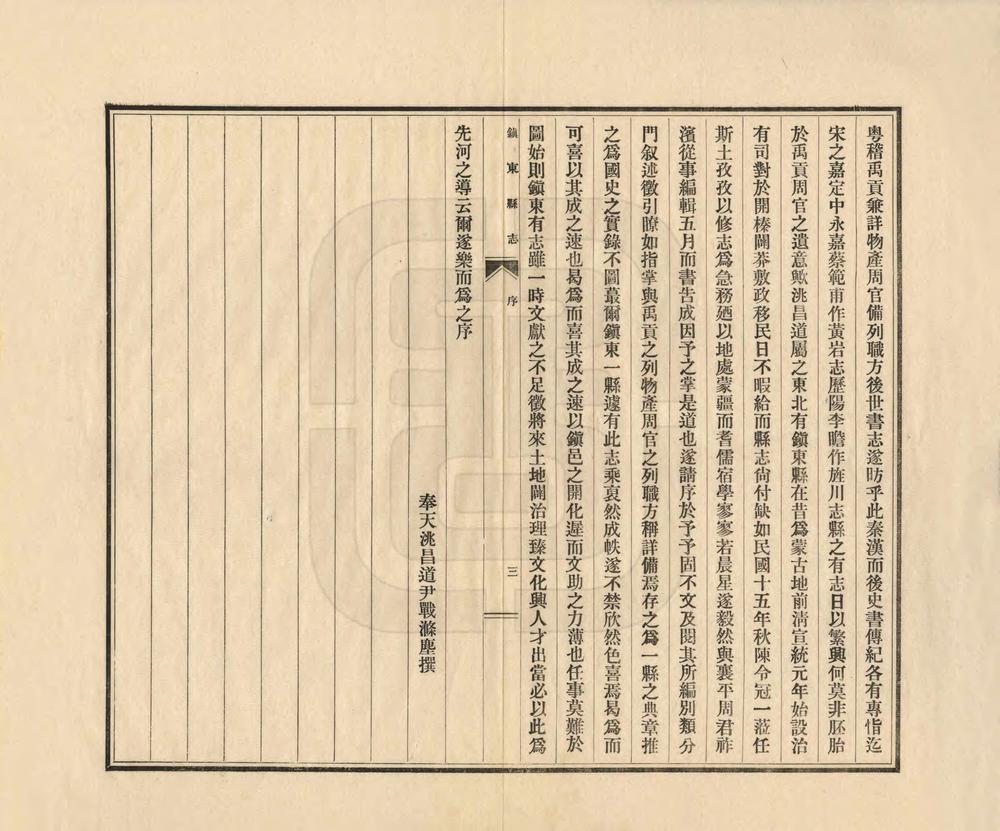 粤稽禹貢兼詳物產周官備列職方後世書志遂昉乎此秦漢而後史書傳紀各有專恉迄
宋之嘉定中永嘉蔡範甫作黃岩志歷陽李瞻作旌川志縣之有志日以繁興何莫非胚胎
於禹貢周官之遺意歟洮昌道屬之東北有鎭東縣在昔爲蒙古地前淸宣統元年始設治
有司對於開榛闢莽敷政移民日不暇給而縣志尙付缺如民國十五年秋陳令冠一蒞任
斯土孜孜以修志爲急務廼以地處蒙疆而耆儒宿學寥寥若晨星遂毅然與襄平周君祚
濱從事編輯五月而書告成因予之掌是道也遂請序於予予固不文及閱其所編別類分
門叙述徵引瞭如指掌與禹貢之列物產周官之列職方稱詳備焉存之爲一縣之典章推
之爲國史之實錄不圖蕞爾鎭東一縣遽有此志乘裒然成帙遂不禁欣然色喜焉曷爲而
可喜以其成之速也曷爲而喜其成之速以鎭邑之開化遲而文助之力薄也任事莫難於
圖始則鎭東有志雖一時文獻之不足徵將來土地闢治理臻文化興人才出當必以此爲
鎭東縣志 序 三
先河之導云爾遂樂而爲之序
奉天洮昌道尹戰滌塵撰